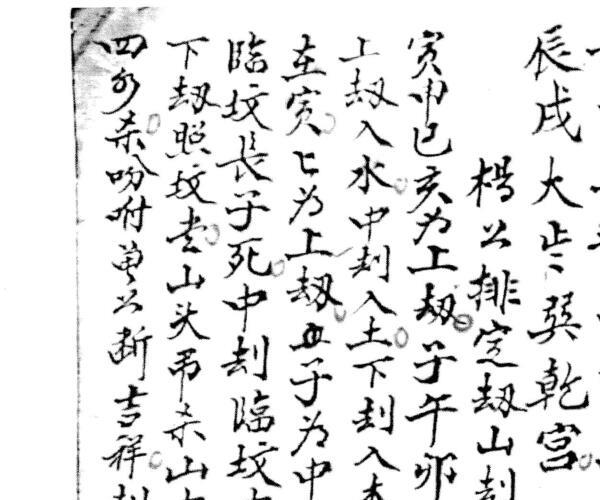 辰戌大叱巽乾宫
楊公排定刼山刦
寅申巳亥為上刼子午卯
上刼入水中刦入土下刦入木
在寅上為上刼丑子為中
臨坟長子死中刦臨坟
下刼照坟堂山头吊杀山
四分杀吩咐曾公断吉祥